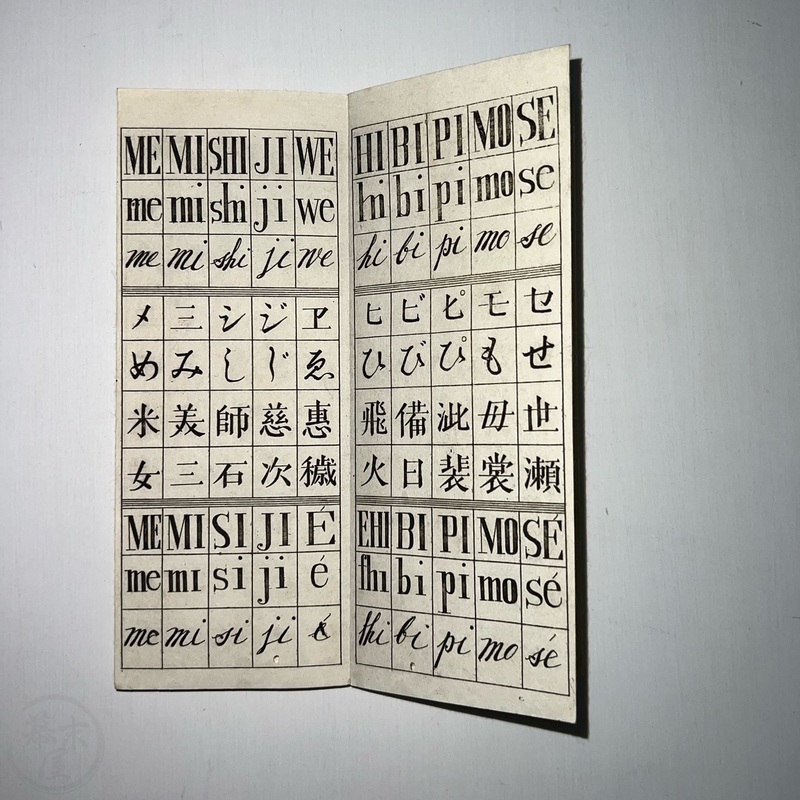 ME MI SHI JI WE
me mi shi ji we
me mi shi ji we
メ ミ シ ジ ヱ
め み し じ ゑ
米 美 師 慈 惠
女 三 石 次 穢
ME MI SI JI É
me mi si ji é
me mi si ji é
HI BI PI MO SE
hi bi pi mo se
hi bi pi mo se
ヒ ビ ピ モ セ
ひ び ぴ も せ
飛 備 泚 毋 世
火 日 裴 裳 瀬
EHI BI PI MO SÉ
fhi bi pi mo sé
fhi bi pi mo sé
幕末屋